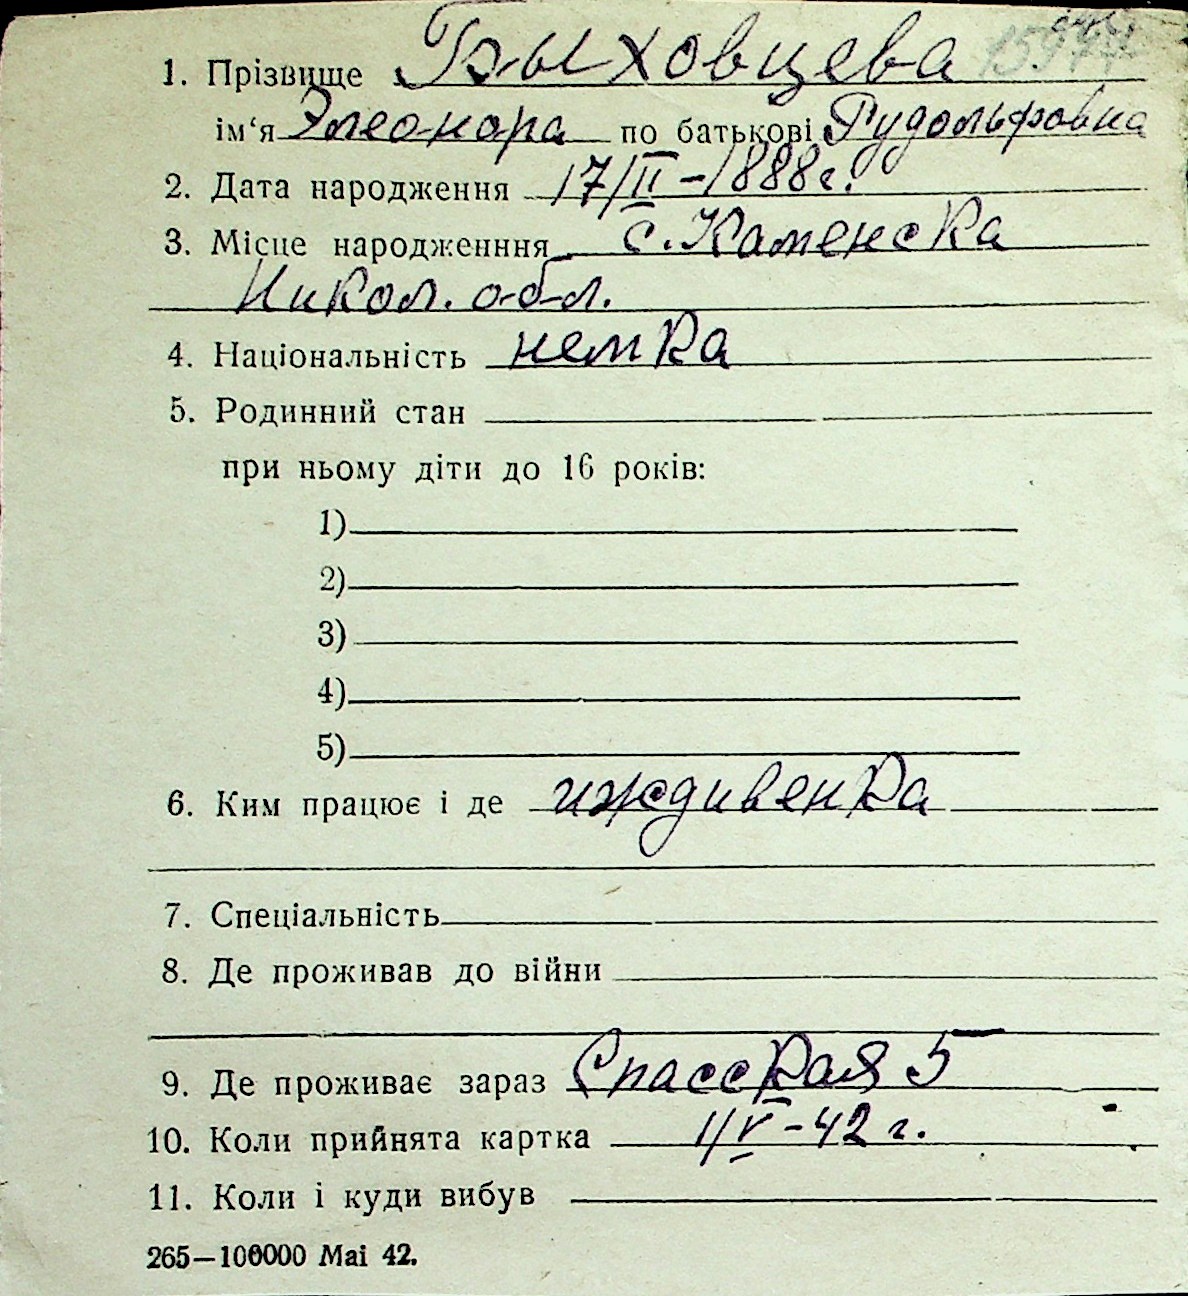 1. Прізвище Быховцева
ім‘я Элеонора по батькові Рудольфовна
2. Дата народження 17/II-1888г.
3. Місце народженння с. Каменска
Никол. обл.
4. Національність немка
5. Родинний стан
при ньому діти до 16 років:
1)
2)
3)
4)
5)
6. Ким працює і де иждивенка
7. Спеціальність
8. Де проживав до війни
9. Де проживає зараз Спасская 5
10. Коли прийнята картка 1/V-42 г.
11. Коли і куди вибув
265—100000 Mai 42.